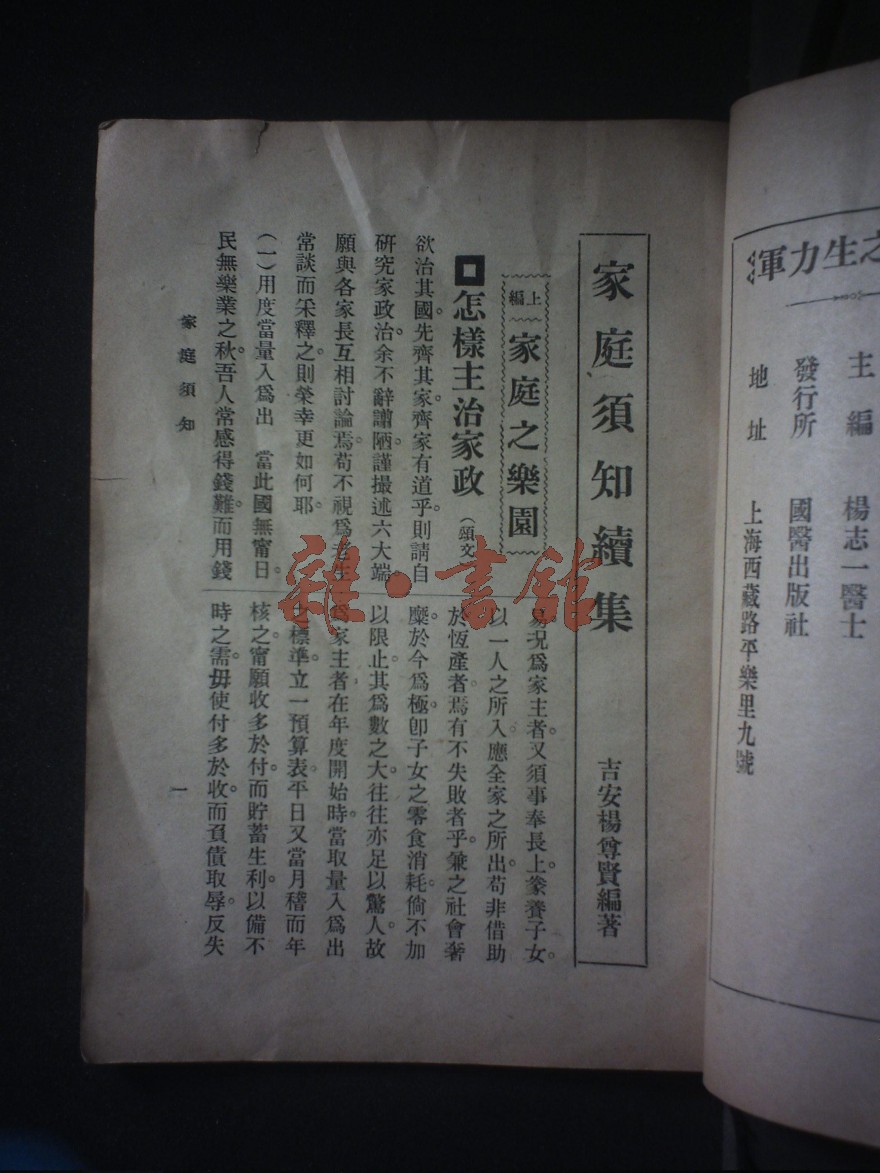 之生力軍
主編 楊志一醫士
發行所 國醫出版社
地址 上海西藏路平樂里九號
家庭須知續集 吉安楊尊賢編著
上編 家庭之樂園
怎樣主治家政 (頌文
欲治其國。先齊其家。齊家有道乎。則請自
研究家政治。余不辭譾陋。謹撮述六大端。
願與各家長互相討論焉。苟不視爲老生
常談而采釋之。則榮幸更如何耶。
(一)用度當量入爲出 當此國無甯日。
民無樂業之秋。吾人常感得錢難。而用錢
易。況爲家主者。又須事奉長上。豢養子女。
以一人之所入。應全家之所出。苟非借助
於恆產者。焉有不失敗者乎。兼之社會奢
糜。於今爲極。卽子女之零食消耗。倘不加
以限止。其爲數之大。往往亦足以驚人。故
爲家主者。在年度開始時。當取量入爲出
之標準。立一預算表。平日又當月稽而年
核之。甯願收多於付。而貯蓄生利。以備不
時之需。毋使付多於收。而負債取辱。反失
家庭須知
一
雜·書館